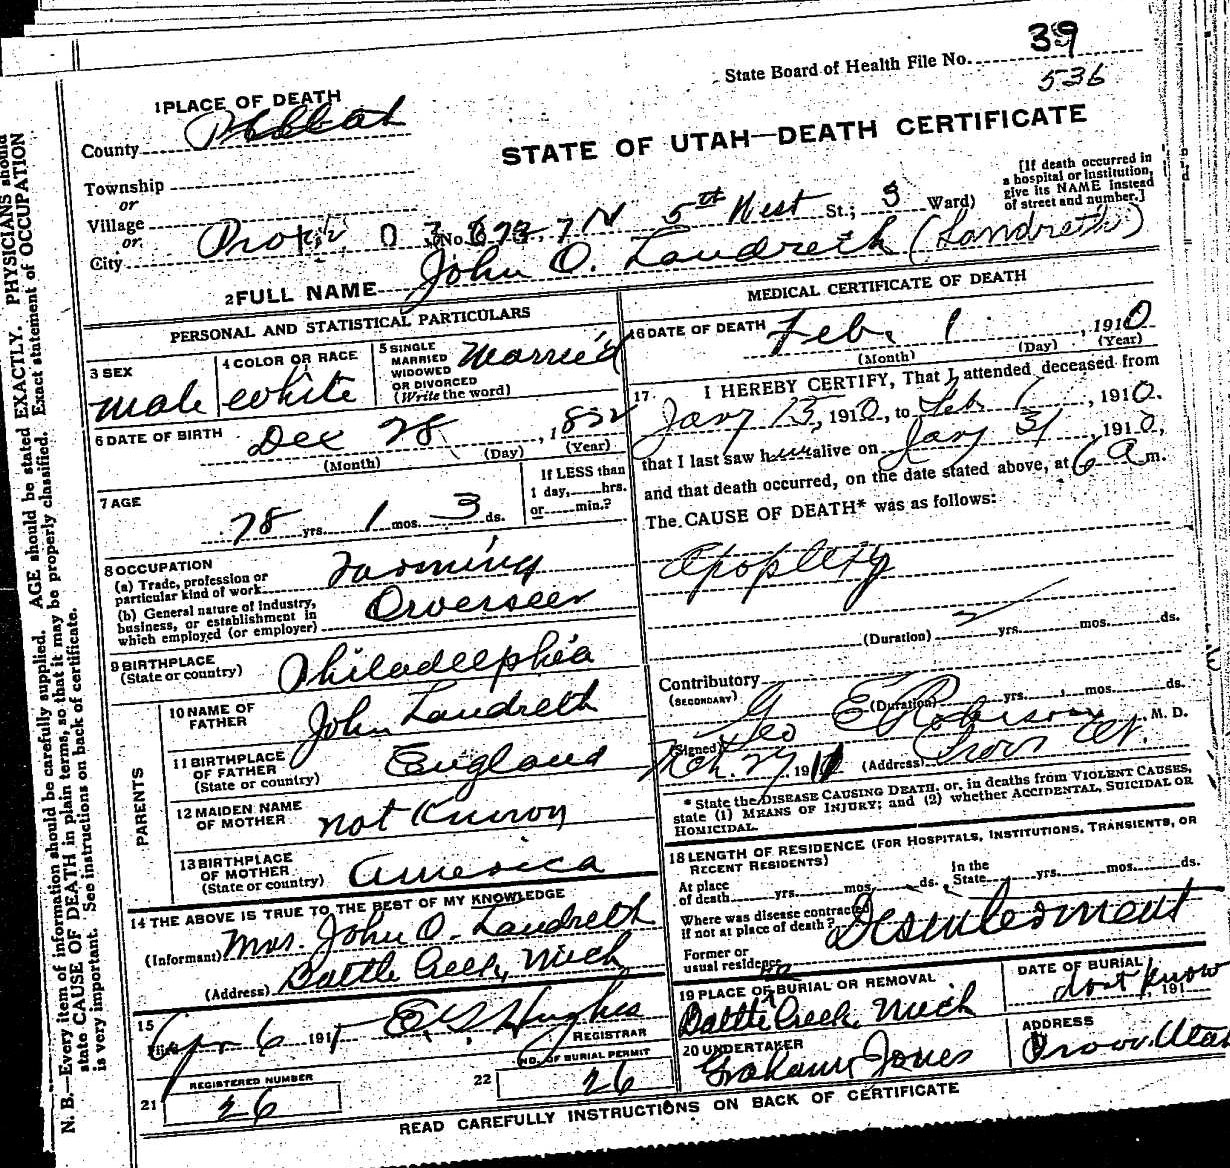 State Board of Health File No. 39
536
1 PLACE OF DEATH
County Utah
STATE OF UTAH—DEATH CERTIFICATE
Township
or
Village
or
City Provo (No. 7 N 5th West St.; 3 Ward)
[If death occurred in a hospital or institution, give its NAME instead of street and number.]
2 FULL NAME John O. Landreth (Landreth)
PERSONAL AND STATISTICAL PARTICULARS
3 SEX
male
4 COLOR OR RACE
white
5 SINGLE
MARRIED
WIDOWED
OR DIVORCED
(Write the word)
Married
6 DATE OF BIRTH
Dec 28, 1832
(Month) (Day) (Year)
7 AGE
78 yrs. 1 mos. 3 ds.
If LESS than
1 day, hrs.
or min.?
8 OCCUPATION
(a) Trade, profession or
particular kind of work Farming
(b) General nature of industry,
business, or establishment in
which employed (or employer) Orverseer
9 BIRTHPLACE
(State or country) Philadelphia
PARENTS
10 NAME OF
FATHER John Landreth
11 BIRTHPLACE
OF FATHER
(State or country) England
12 MAIDEN NAME
OF MOTHER not Known
13 BIRTHPLACE
OF MOTHER
(State or country) America
14 THE ABOVE IS TRUE TO THE BEST OF MY KNOWLEDGE
(Informant) Mrs. John O. Landreth
(Address) Battle Creek, Mich
15
Filed Apr 6 1911 Hughes
REGISTRAR
REGISTERED NUMBER
21 26
NO. OF BURIAL PERMIT
22 26
MEDICAL CERTIFICATE OF DEATH
16 DATE OF DEATH Feb. 1, 1910
(Month) (Day) (Year)
17 I HEREBY CERTIFY, That I attended deceased from
Jany 15, 1910, to Feb 1, 1910.
that I last saw him alive on Jany 31 1910,
and that death occurred, on the date stated above, at 6 a m.
The CAUSE OF DEATH* was as follows:
Apoplexy
(Duration) 2 yrs. mos. ds.
Contributory
(SECONDARY)
(Duration) yrs. mos. ds.
(Signed) Geo E Robison M. D.
Mch. 27 1911 (Address) Provo Ut.
* State the DISEASE CAUSING DEATH, or, in deaths from VIOLENT CAUSES,
state (1) MEANS OF INJURY; and (2) whether ACCIDENTAL, SUICIDAL OR
HOMICIDAL.
18 LENGTH OF RESIDENCE (FOR HOSPITALS, INSTITUTIONS, TRANSIENTS, OR
RECENT RESIDENTS)
At place
of death yrs. mos. ds. In the
State yrs. mos. ds.
Where was disease contracted
if not at place of death?
Former or
usual residence
Desinterment
19 PLACE OF BURIAL OR REMOVAL
Battle Creek, Mich
DATE OF BURIAL
dont know, 191
20 UNDERTAKER
Graham Jones
ADDRESS
Provo, Utah
READ CAREFULLY INSTRUCTIONS ON BACK OF CERTIFICATE
N. B.—Every item of information should be carefully supplied. AGE should be stated EXACTLY. PHYSICIANS should
state CAUSE OF DEATH in plain terms, so that it may be properly classified. Exact statement of OCCUPATION
is very important. See instructions on back of certificate.